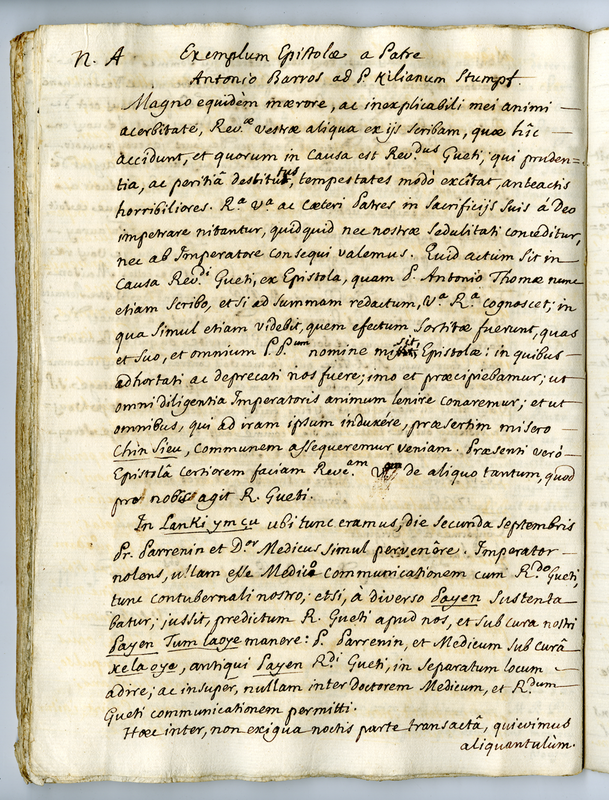 N. A Exemplum Epistolæ a Patre
Antonio Barros ad P. Kilianum Stumpf.
Magno equidèm mærore, ac inexplicabili mei animi
acorbitate, Rev.æ vestræ aliqua ex ijs scribam, quæ hîc
accidunt, et quorum in causa est Rev.dus Gueti, qui pruden=
tia, ac peritiâ destitutus, tempestates modò excitat, anteactis
horribiliores. R.a V.a ac Cæteri Patres in Sacrificijs suis â Deo
impetrare nitantur, quidquid nec nostræ sedulitati conceditur,
nec ab Imperatore consequi valemus. Quid actum sit in
causa Rev.di Gueti, ex Epistola, quam P. Antonio Thomæ nunc
etiam scribo, etsi ad summam redactum, V.a R.a cognoscet; in
qua simul etiam videbit, quem efectum sortitæ fuerunt, quas
et suo, et omnium P.P.um nomine misit, Epistolæ: in quibus
adhortati ac deprecati nos fuere; imo et præcipiebamur; ut
omni diligentia Imperatoris animum lenire conaremur; et ut
omnibus, qui ad iram ipsum induxére, præsertim misero
Chin Sieu, communem assequeremur veniam. Præsenti verò
Epistolâ certiorem faciam Reve.am V.am de aliquo tantum, quod
pro nobis agit R. Gueti.
In Lanki ymçu ubi tunc eramus, die secunda Septembris
Pr. Parrenin et D.or Medicus simul pervenêre. Imperator
nolens, ullam esse Medico communicationem cum R.do Gueti,
tunc contubernali nostro; etsi, à diverso Payen sustenta
batur; jussit, predictum R. Gueti apud nos, et sub cura nostri
Payen Tum laoye manere: P. Parrenin, et Medicum sub curâ
xe laoye, antiqui Payen R.di Gueti, in separatum locum
adire; ac insuper, nullam inter doctorem Medicum, et R.dum
Gueti communicationem permitti.
Hæc inter, non exigua noctis parte transactâ, quievimus
aliquantulùm.